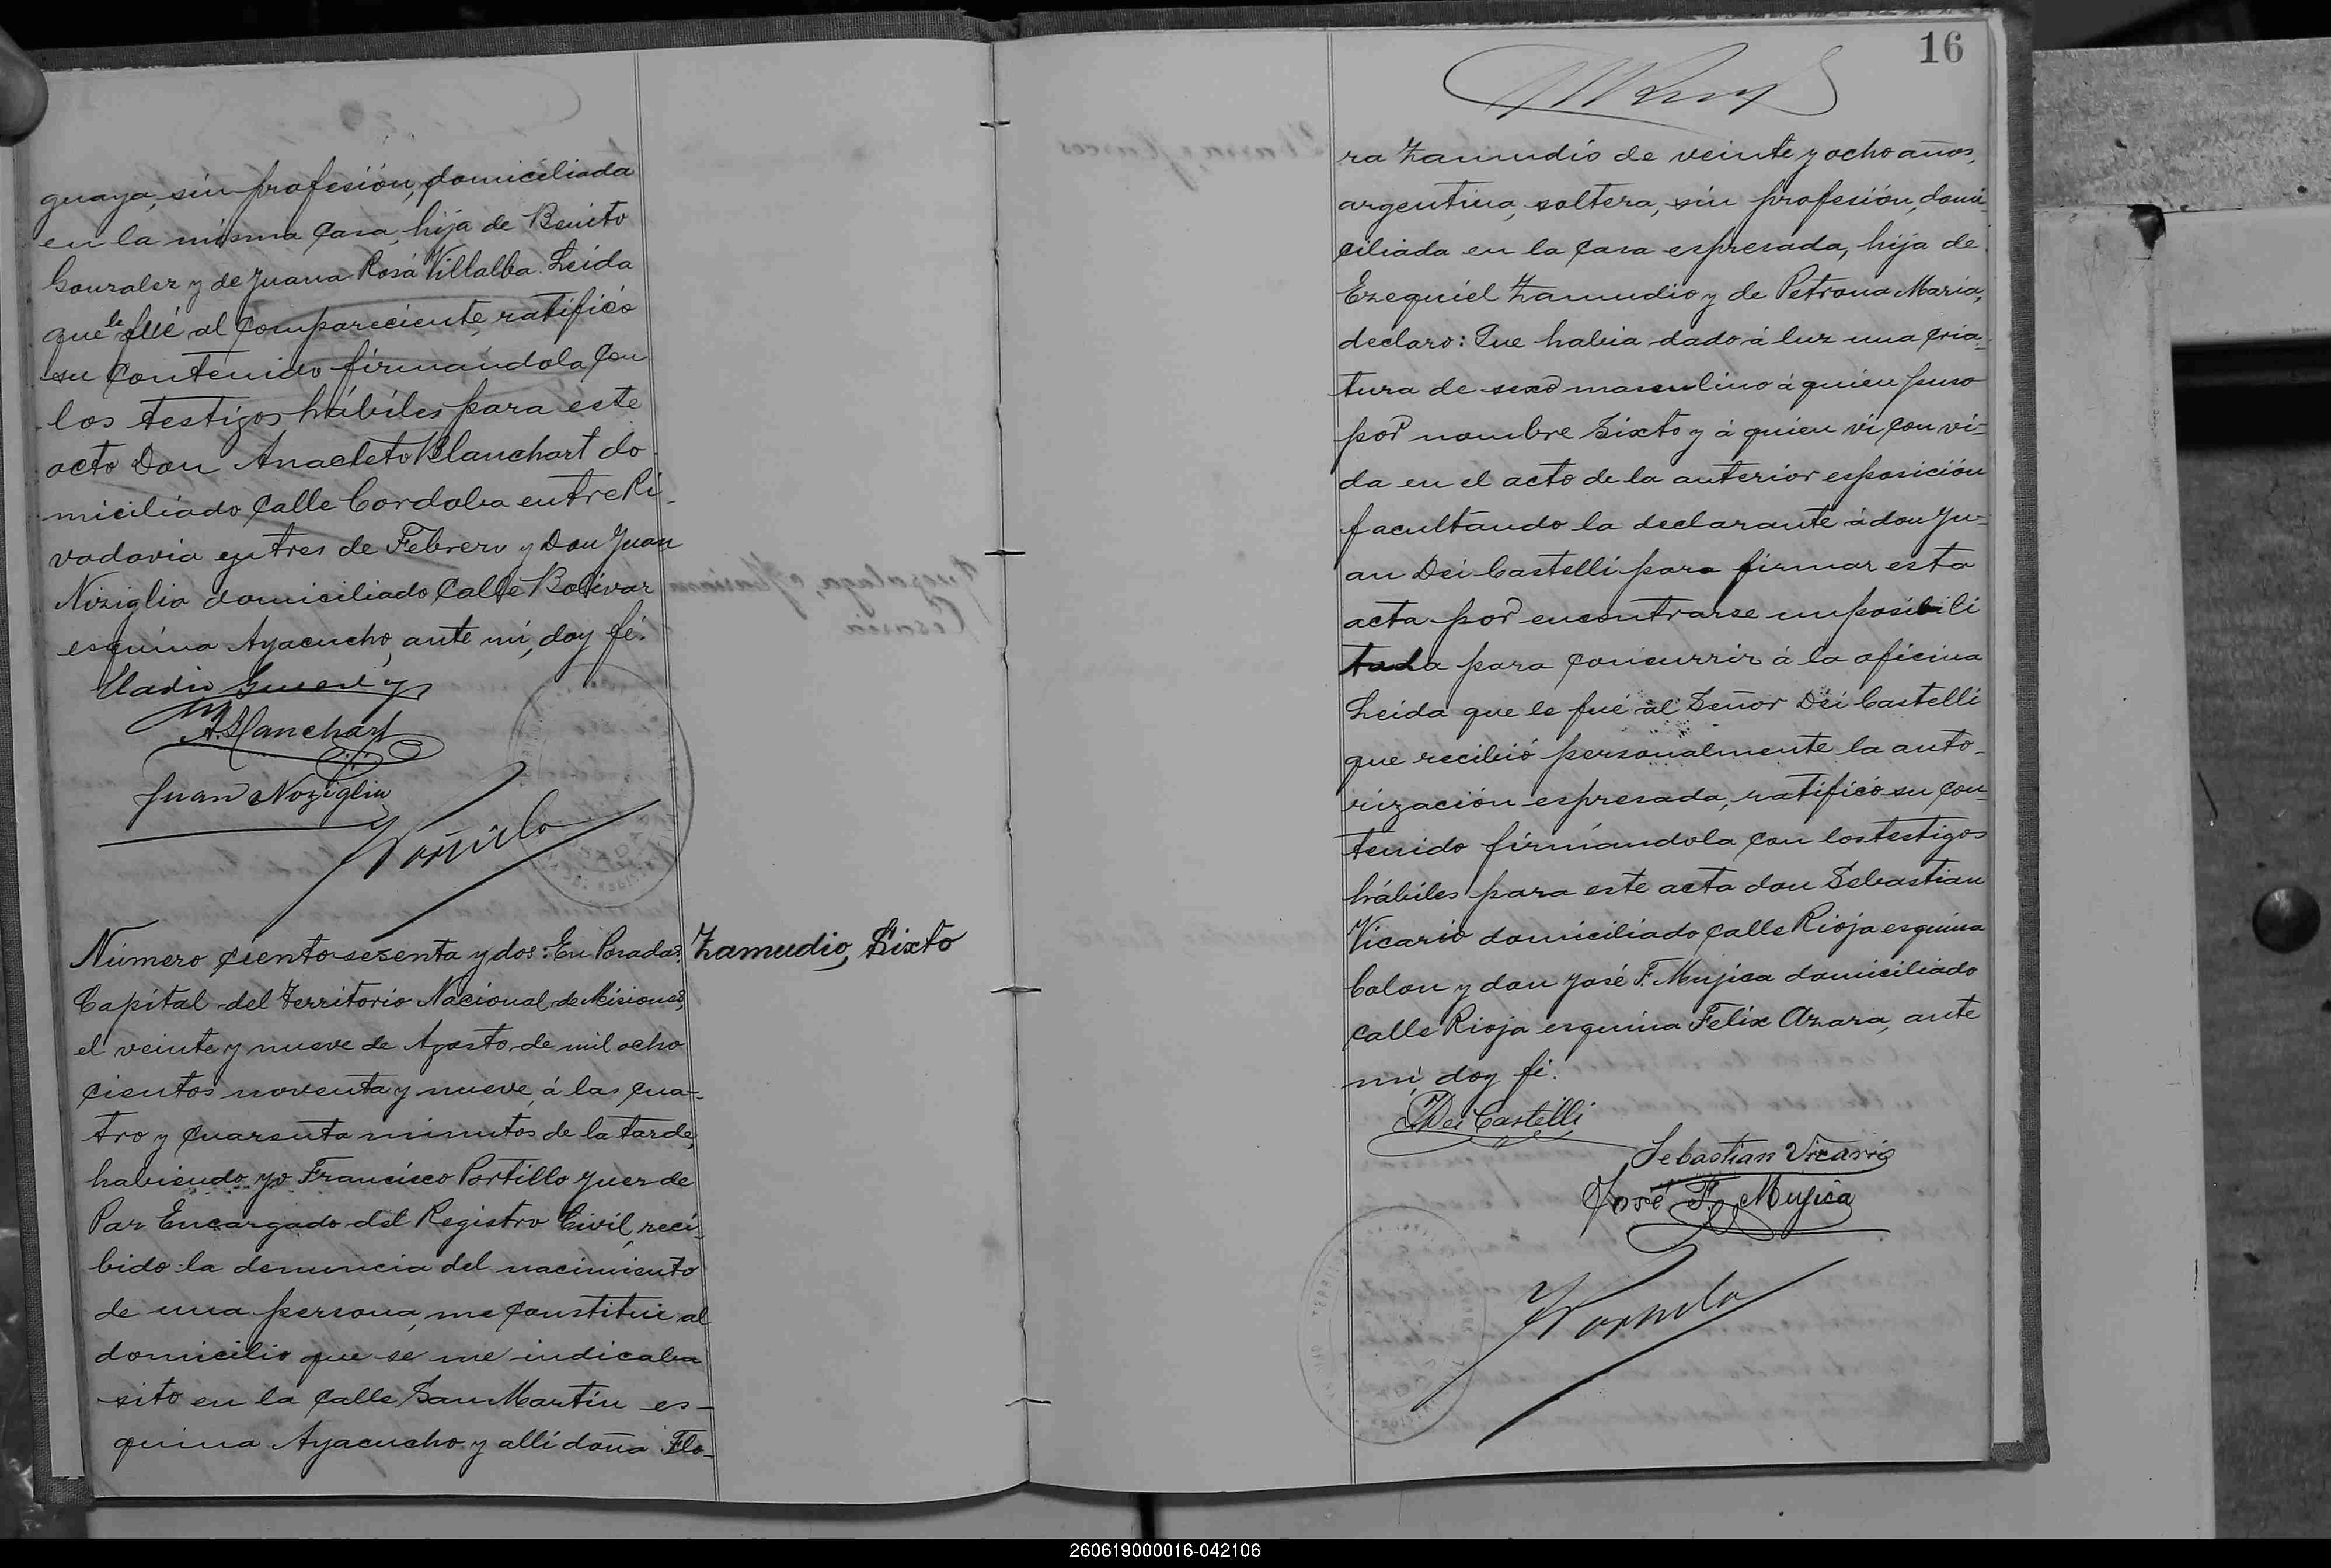 guaya, sin profesión, domiciliada
en la misma casa, hija de Benito
Gonzalez y de Juana Rosa Villalba. Leida
que le fué al compareciente, ratificó
su contenido firmandola con
los testigos hábiles para este
acto Don Anacleto Blanchart do
miciliado calle Cordoba entre Ri_
vadavia y tres de Febrero y Don Juan
Noziglia domiciliado calle Bolivar
esquina Ayacucho, ante mi, doy fé.
A. Blanchart
Juan Noziglia
Portillo
Número ciento sesenta y dos: En Posadas,
Capital del Territorio Nacional de Misiones,
el veinte y nueve de Agosto de mil ocho
cientos noventa y nueve, á las cua-
tro y cuarenta minutos de la tarde,
habiendo yo Francisco Portillo Juez de
Paz Encargado del Registro Civil, reci_
bido la denuncia del nacimiento
de una persona, me constitui al
domicilio que se me indicaba
sito en la calle San Martin es_
quina Ayacucho y alli doña Flo_
Zamudio, Sixto
16
ra Zamudio de veinte y ocho años,
argentina, soltera, sin profesión, domi_
ciliada en la casa espresada, hija de
Ezequiel Zamudio y de Petrona Maria,
declaro: Que habia dado á luz una cria_
tura de sexo masculino á quien puso
por nombre Sixto y á quien vi con vi_
da en el acto de la anterior esposición
facultando la declarante á don Ju_
an Dei Castelli para firmar esta
acta por encontrarse imposibili
tada para concurrir á la oficina
Leida que le fué al Señor Dei Castelli
que recibió personalmente la auto_
rización espresada, ratificó su con_
tenido firmándola con los testigos
hábiles para este acta don Sebastian
Vicario domiciliado calle Rioja esquina
Colon y don José F. Mujica domiciliado
calle Rioja esquina Felix Azara, ante
mi, doy fé.
J Dei Castelli
Sebastian Vicario
José F. Mujica
Portillo
260619000016-042106